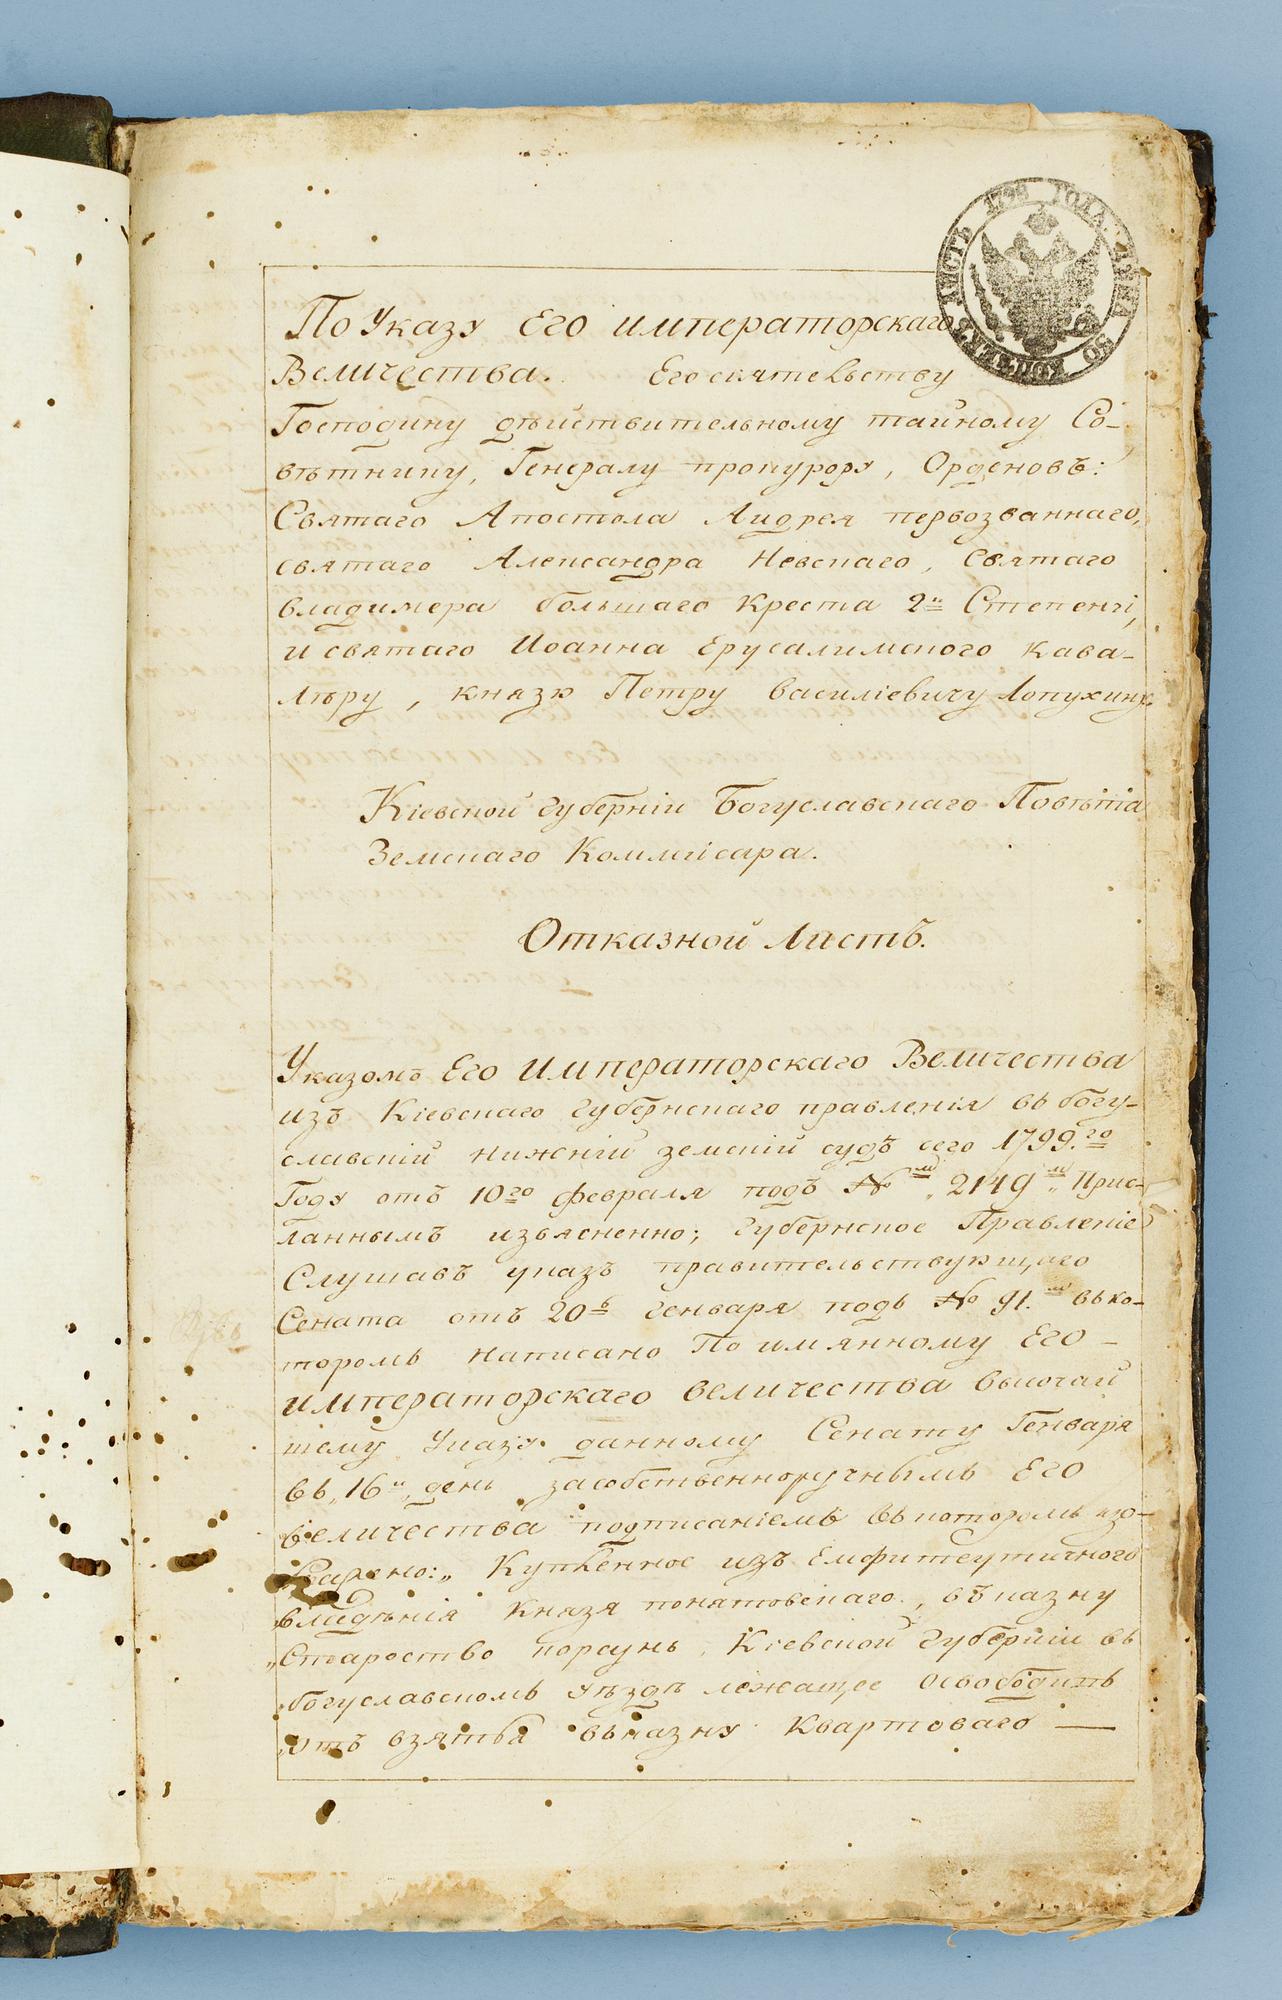 ЛИСТЪ 1799 ГОДА. ЦѢНА 30 КОПѢЕКЪ
По Указу Его императорскаго
Величества. Его сиятельству
Господину дѣйствительному тайному Со-
вѣтнику, Генералу прокурору, Орденовъ:
Святаго Апостола Андрея первозваннаго,
святаго Александра Невскаго, святаго
владимера большаго креста 2й Степени,
и святаго Иоанна Ерусалимского кава-
лѣру, князю Петру василіевичу Лопухину.
Кіевской губерніи Богуславскаго Повѣта
Земскаго Коммисара.
Отказной Листъ.
Указомъ Его Императорскаго Величества
изъ Кіевскаго губернскаго правленія въ богу-
славскій нижній земскій судъ сего 1799.го
Году отъ 10го февраля подъ №м „2149м„ прис-
ланнымъ изъяснено; губернское Правленіе
Слушавъ указъ правительствующаго
Сената отъ 20в Генваря подъ № 91.м въ ко-
торомъ написано По имянному ЕГО -
императорскаго величества высочай
шему Указу данному Сенату Генваря
въ „16й„ день засобственноручнымъ ЕГО
величества подписаніемъ въ которомъ изо-
бражено:„ Купленное изъ Емфитеутичного
владѣнія князя понятовскаго, въ казну
„Староство корсунь, Кіевской губерніи въ
„богуславскомъ уѣздѣ лежащее освободить
„отъ взятья въ казну квартоваго —